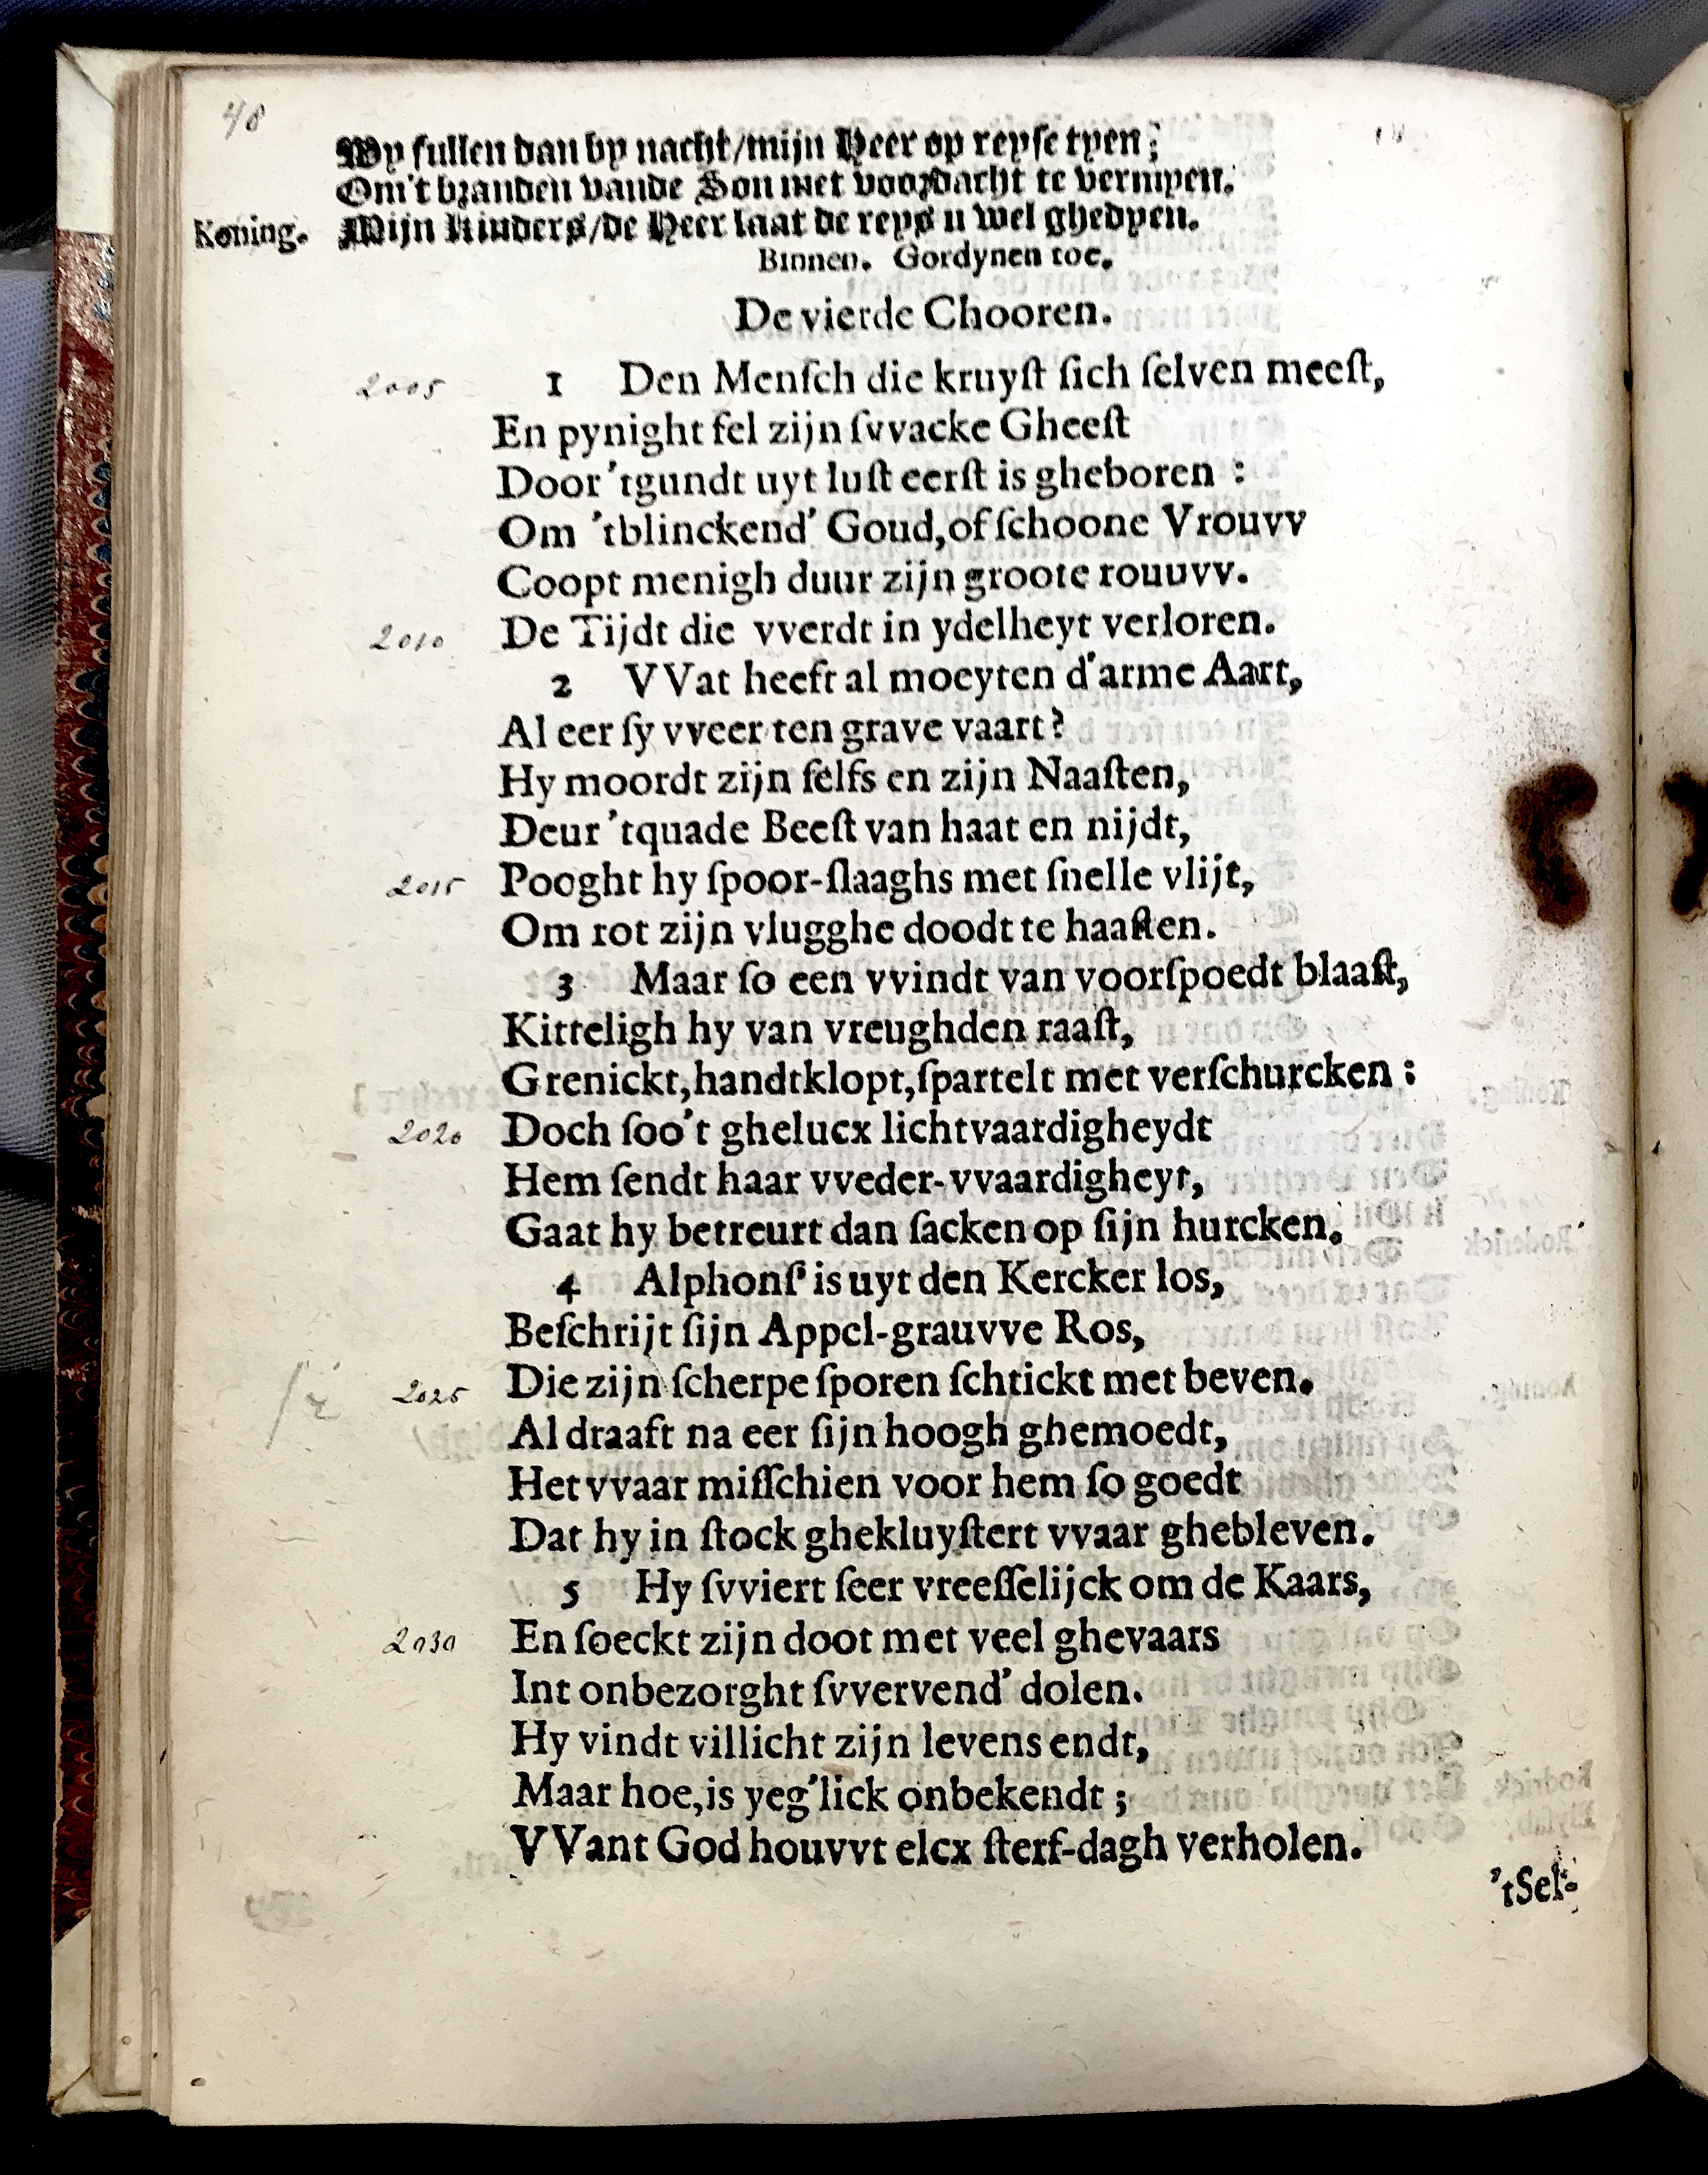 48
Wy sullen dan by nacht/mijn Heer op reyse tyen;
Om't branden vande Son met voordacht te vermyen.
Koning. Mijn Kinders/de Heer laat de reys u wel ghedyen.
Binnen. Gordynen toe.
De vierde Chooren.
2005 1 Den Menſch die kruyſt ſich ſelven meeſt,
En pynight fel zijn ſvvacke Gheeſt
Door 'tgundt uyt luſt eerſt is gheboren :
Om 'tblinckend' Goud,of ſchoone Vrouvv
Coopt menigh duur zijn groote rouuvv.
2010 De Tijdt die vverdt in ydelheyt verloren.
2 VVat heeft al moeyten d'arme Aart,
Al eer ſy vveer ten grave vaart?
Hy moordt zijn ſelfs en zijn Naaſten,
Deur 'tquade Beeſt van haat en nijdt,
2015 Pooght hy ſpoor-ſlaaghs met ſnelle vlijt,
Om rot zijn vlugghe doodt te haaſten.
3 Maar ſo een vvindt van voorſpoedt blaaſt,
Kitteligh hy van vreughden raaſt,
Grenickt,handtklopt,ſpartelt met verſchurcken :
2020 Doch ſoo't ghelucx lichtvaardigheydt
Hem ſendt haar vveder-vvaardigheyt,
Gaat hy betreurt dan ſacken op ſijn hurcken.
4 Alphonſ' is uyt den Kercker los,
Beſchrijt ſijn Appel-grauvve Ros,
2025 Die zijn ſcherpe ſporen ſchtickt met beven.
Al draaft na eer ſijn hoogh ghemoedt,
Het vvaar miſſchien voor hem ſo goedt
Dat hy in ſtock ghekluyſtert vvaar ghebleven.
5 Hy ſvviert ſeer vreeſſelijck om de Kaars,
2030 En ſoeckt zijn doot met veel ghevaars
Int onbezorght ſvvervend' dolen.
Hy vindt villicht zijn levens endt,
Maar hoe,is yeg'lick onbekendt ;
VVant God houvvt elcx ſterf-dagh verholen.
'tSel-